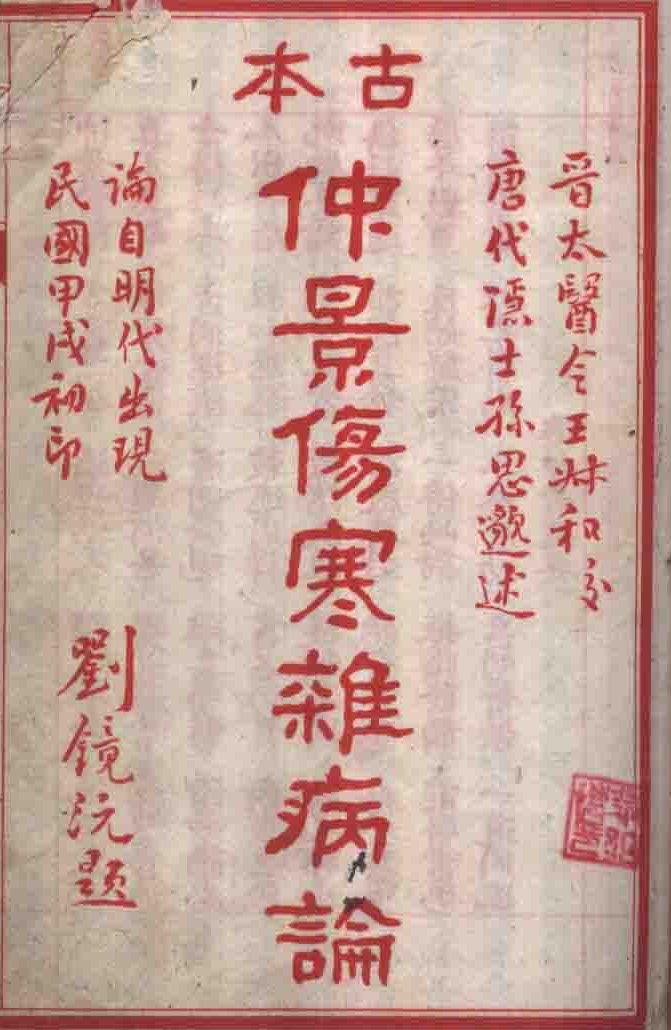 古本
晋太醫令王叔和交
唐代隱士孫思邈述
仲景傷寒雜病論
論自明代出現
民國甲戌初印
劉鏡沅題